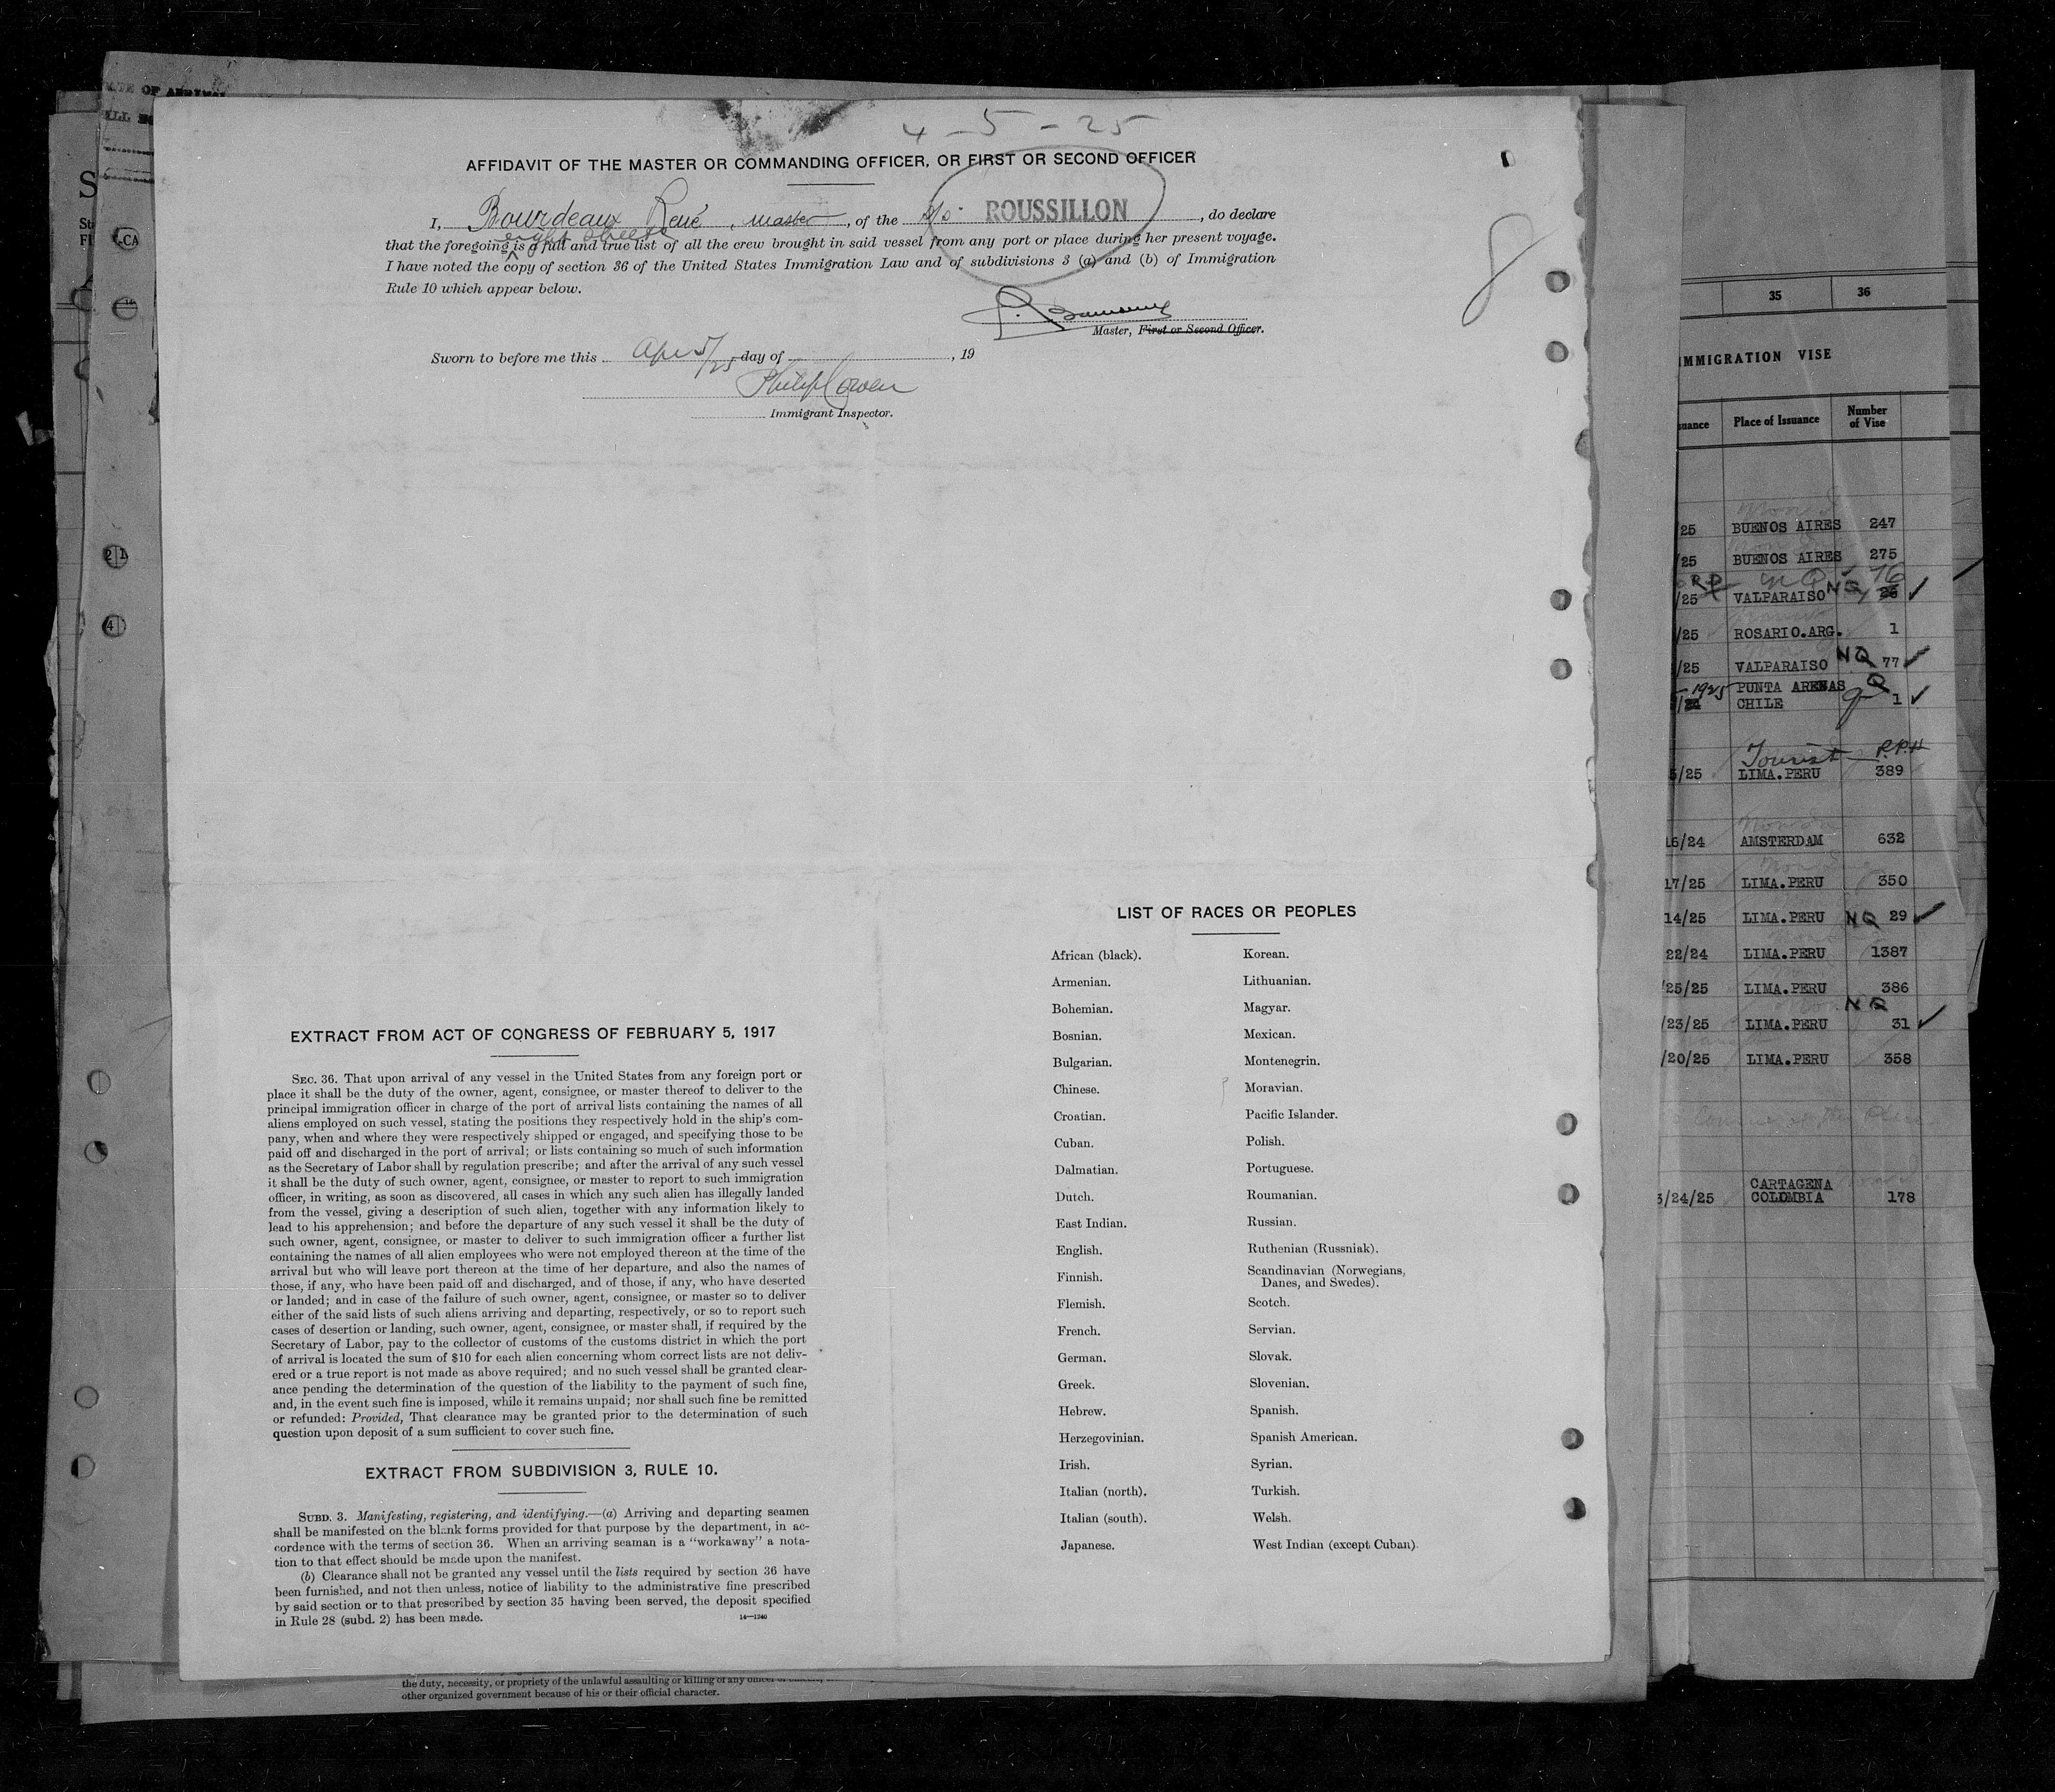 4-5-25
AFFIDAVIT OF THE MASTER OR COMMANDING OFFICER, OR FIRST OR SECOND OFFICER
I, Bourdeaux René, master, of the S/S ROUSSILLON, do declare
eight sheets
that the foregoing is a full and true list of all the crew brought in said vessel from any port or place during her present voyage.
I have noted the copy of section 36 of the United States Immigration Law and of subdivisions 3 (a) and (b) of Immigration
Rule 10 which appear below.
8
Master, First or Second Officer.
Sworn to before me this Apr 5/25 day of , 19
Philip Cowen
Immigrant Inspector.
EXTRACT FROM ACT OF CONGRESS OF FEBRUARY 5, 1917
SEC. 36. That upon arrival of any vessel in the United States from any foreign port or
place it shall be the duty of the owner, agent, consignee, or master thereof to deliver to the
principal immigration officer in charge of the port of arrival lists containing the names of all
aliens employed on such vessel, stating the positions they respectively hold in the ship's com-
pany, when and where they were respectively shipped or engaged, and specifying those to be
paid off and discharged in the port of arrival; or lists containing so much of such information
as the Secretary of Labor shall by regulation prescribe; and after the arrival of any such vessel
it shall be the duty of such owner, agent, consignee, or master to report to such immigration
officer, in writing, as soon as discovered, all cases in which any such alien has illegally landed
from the vessel, giving a description of such alien, together with any information likely to
lead to his apprehension; and before the departure of any such vessel it shall be the duty of
such owner, agent, consignee, or master to deliver to such immigration officer a further list
containing the names of all alien employees who were not employed thereon at the time of the
arrival but who will leave port thereon at the time of her departure, and also the names of
those, if any, who have been paid off and discharged, and of those, if any, who have deserted
or landed; and in case of the failure of such owner, agent, consignee, or master so to deliver
either of the said lists of such aliens arriving and departing, respectively, or so to report such
cases of desertion or landing, such owner, agent, consignee, or master shall, if required by the
Secretary of Labor, pay to the collector of customs of the customs district in which the port
of arrival is located the sum of $10 for each alien concerning whom correct lists are not deliv-
ered or a true report is not made as above required; and no such vessel shall be granted clear-
ance pending the determination of the question of the liability to the payment of such fine,
and, in the event such fine is imposed, while it remains unpaid; nor shall such fine be remitted
or refunded: Provided, That clearance may be granted prior to the determination of such
question upon deposit of a sum sufficient to cover such fine.
EXTRACT FROM SUBDIVISION 3, RULE 10.
SUBD. 3. Manifesting, registering, and identifying.—(a) Arriving and departing seamen
shall be manifested on the blank forms provided for that purpose by the department, in ac-
cordance with the terms of section 36. When an arriving seaman is a "workaway" a nota-
tion to that effect should be made upon the manifest.
(b) Clearance shall not be granted any vessel until the lists required by section 36 have
been furnished, and not then unless, notice of liability to the administrative fine prescribed
by said section or to that prescribed by section 35 having been served, the deposit specified
in Rule 28 (subd. 2) has been made.
14—1240
LIST OF RACES OR PEOPLES
African (black). Korean.
Armenian. Lithuanian.
Bohemian. Magyar.
Bosnian. Mexican.
Bulgarian. Montenegrin.
Chinese. Moravian.
Croatian. Pacific Islander.
Cuban. Polish.
Dalmatian. Portuguese.
Dutch. Roumanian.
East Indian. Russian.
English. Ruthenian (Russniak).
Finnish. Scandinavian (Norwegians,
Danes, and Swedes).
Flemish. Scotch.
French. Servian.
German. Slovak.
Greek. Slovenian.
Hebrew. Spanish.
Herzegovinian. Spanish American.
Irish. Syrian.
Italian (north). Turkish.
Italian (south). Welsh.
Japanese. West Indian (except Cuban)
35 36
IMMIGRATION VISE
Place of Issuance Number
of Vise
/25 BUENOS AIRES 247
/25 BUENOS AIRES 275
76
/25 VALPARAISO NQ
/25 ROSARIO.ARG. 1
/25 VALPARAISO NQ 77
1925 PUNTA ARENAS Q
CHILE 1
Tourist
5/25 LIMA.PERU 389
16/24 AMSTERDAM 632
17/25 LIMA.PERU 350
14/25 LIMA.PERU NQ 29
22/24 LIMA.PERU 1387
/25/25 LIMA.PERU 386
NQ
/23/25 LIMA.PERU 31
/20/25 LIMA.PERU 358
CARTAGENA
3/24/25 COLOMBIA 178
the duty, necessity, or propriety of the unlawful assaulting or killing of any
other organized government because of his or their official character.